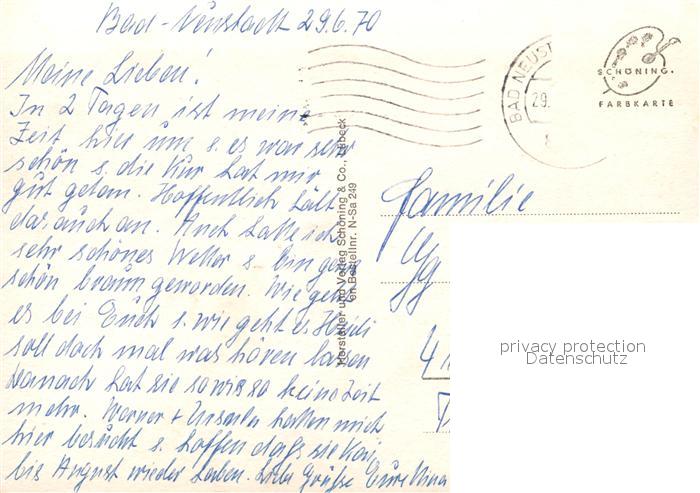 Bad-Neustadt 29.6.70
Meine Lieben!
In 2 Tagen ist meine
Zeit hier um u. es war sehr
schön u. die Kur hat mir
gut getan. Hoffentlich hält
das auch an. Auch hatte ich
sehr schönes Wetter u. bin ganz
schön braun geworden. Wie geht
es bei Euch u. wie geht es Heidi
soll doch mal was hören lassen
danach hat sie sowieso keine Zeit
mehr. Werner + Ursula hatten mich
hier besucht u. hoffen daß sie
bis August wieder haben. Liebe Grüße Eure
Hersteller und Verlag Schöning & Co., Lübeck
Bestellnr. N-Sa 249
BAD NEUST
29.
SCHÖNING.
FARBKARTE
Familie
4
privacy protection
Datenschutz